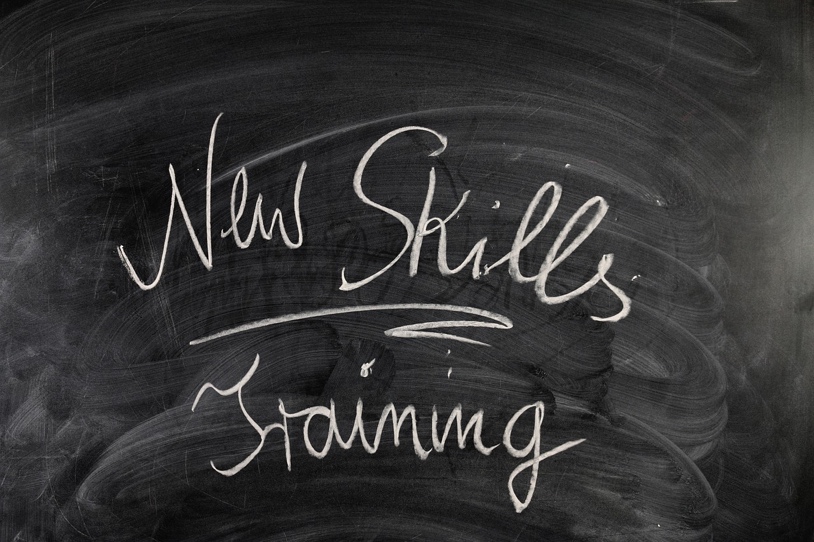 New Skills
Training